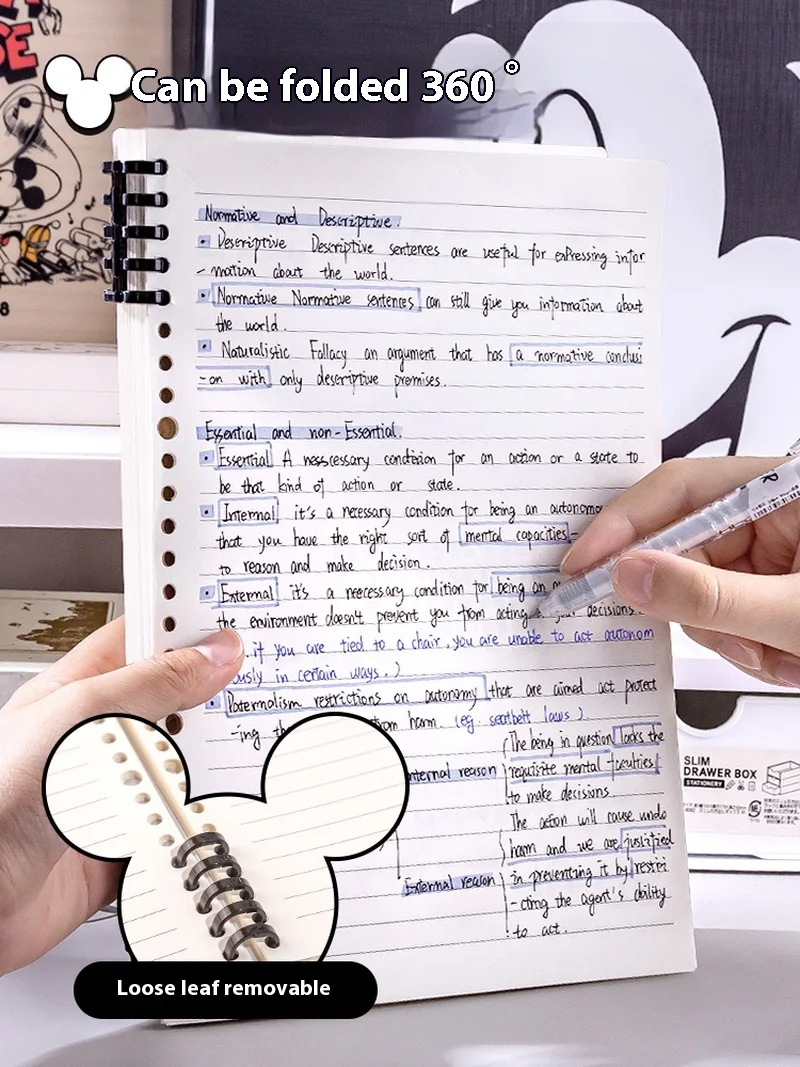 Can be folded 360°
SE
8
Normative and Descriptive.
• Descriptive Descriptive sentences are useful for expressing infor
- mation about the world.
• Normative Normative sentences can still give you information about
the world.
• Naturalistic Fallacy an argument that has a normative conclusi
-on with only descriptive premises.
Essential and non-Essential.
• Essential A nesscessary condition for an action or a state to
be that kind of action or state.
• Internal it's a necessary condition for being an autonomo
that you have the right sort of mental capacities-
to reason and make decision.
• External it's a neccessary condition for being an
the environment doesn't prevent you from acting decisions.
if you are tied to a chair, you are unable to act autonom
ously in certain ways.)
• Paternalism restrictions on autonomy that are aimed act protect
-ing from harm. (eg. seatbelt laws)
nternal reason
The being in question lacks the
requisite mental faculties
to make decisions
External reason
The action will cause undo
harm and we are justified
in preventing it by restri
-cting the agent's ability
to act.
R
SLIM
DRAWER BOX
STATIONERY
Loose leaf removable